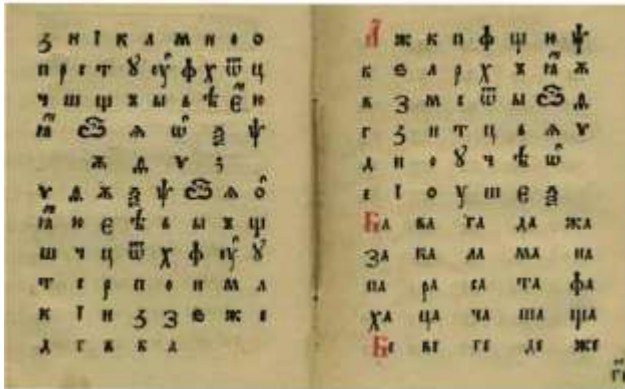 з и ї к л м н ѻ о
п р с т ꙋ оу ф х ѿ ц
ч ш щ ъ ы ь ѣ є ю
ꙗ ѽ ѧ ѡ ѯ ѱ
ѫ ѧ ѵ з
ѵ ѧ ѫ ѯ ѱ ѽ ѧ ѡ
ꙗ ю є ѣ ь ы ъ щ
ш ч ц ѿ х ф оу ꙋ
т с р п о н м л
к ї и з ꙁ ѕ ж е
д г в б а
А ж к п ф щ ю ѱ
б ѕ л р х ъ ꙗ ѫ
в ꙁ м с ѿ ы ѽ ѧ
г з н т ц ь ѧ ѵ
д и о ꙋ ч ѣ ѡ
е ї о у ш є ѯ
Ба ва га да жа
за ка ла ма на
па ра са та фа
ха ца ча ша ща
Бе ве ге де же